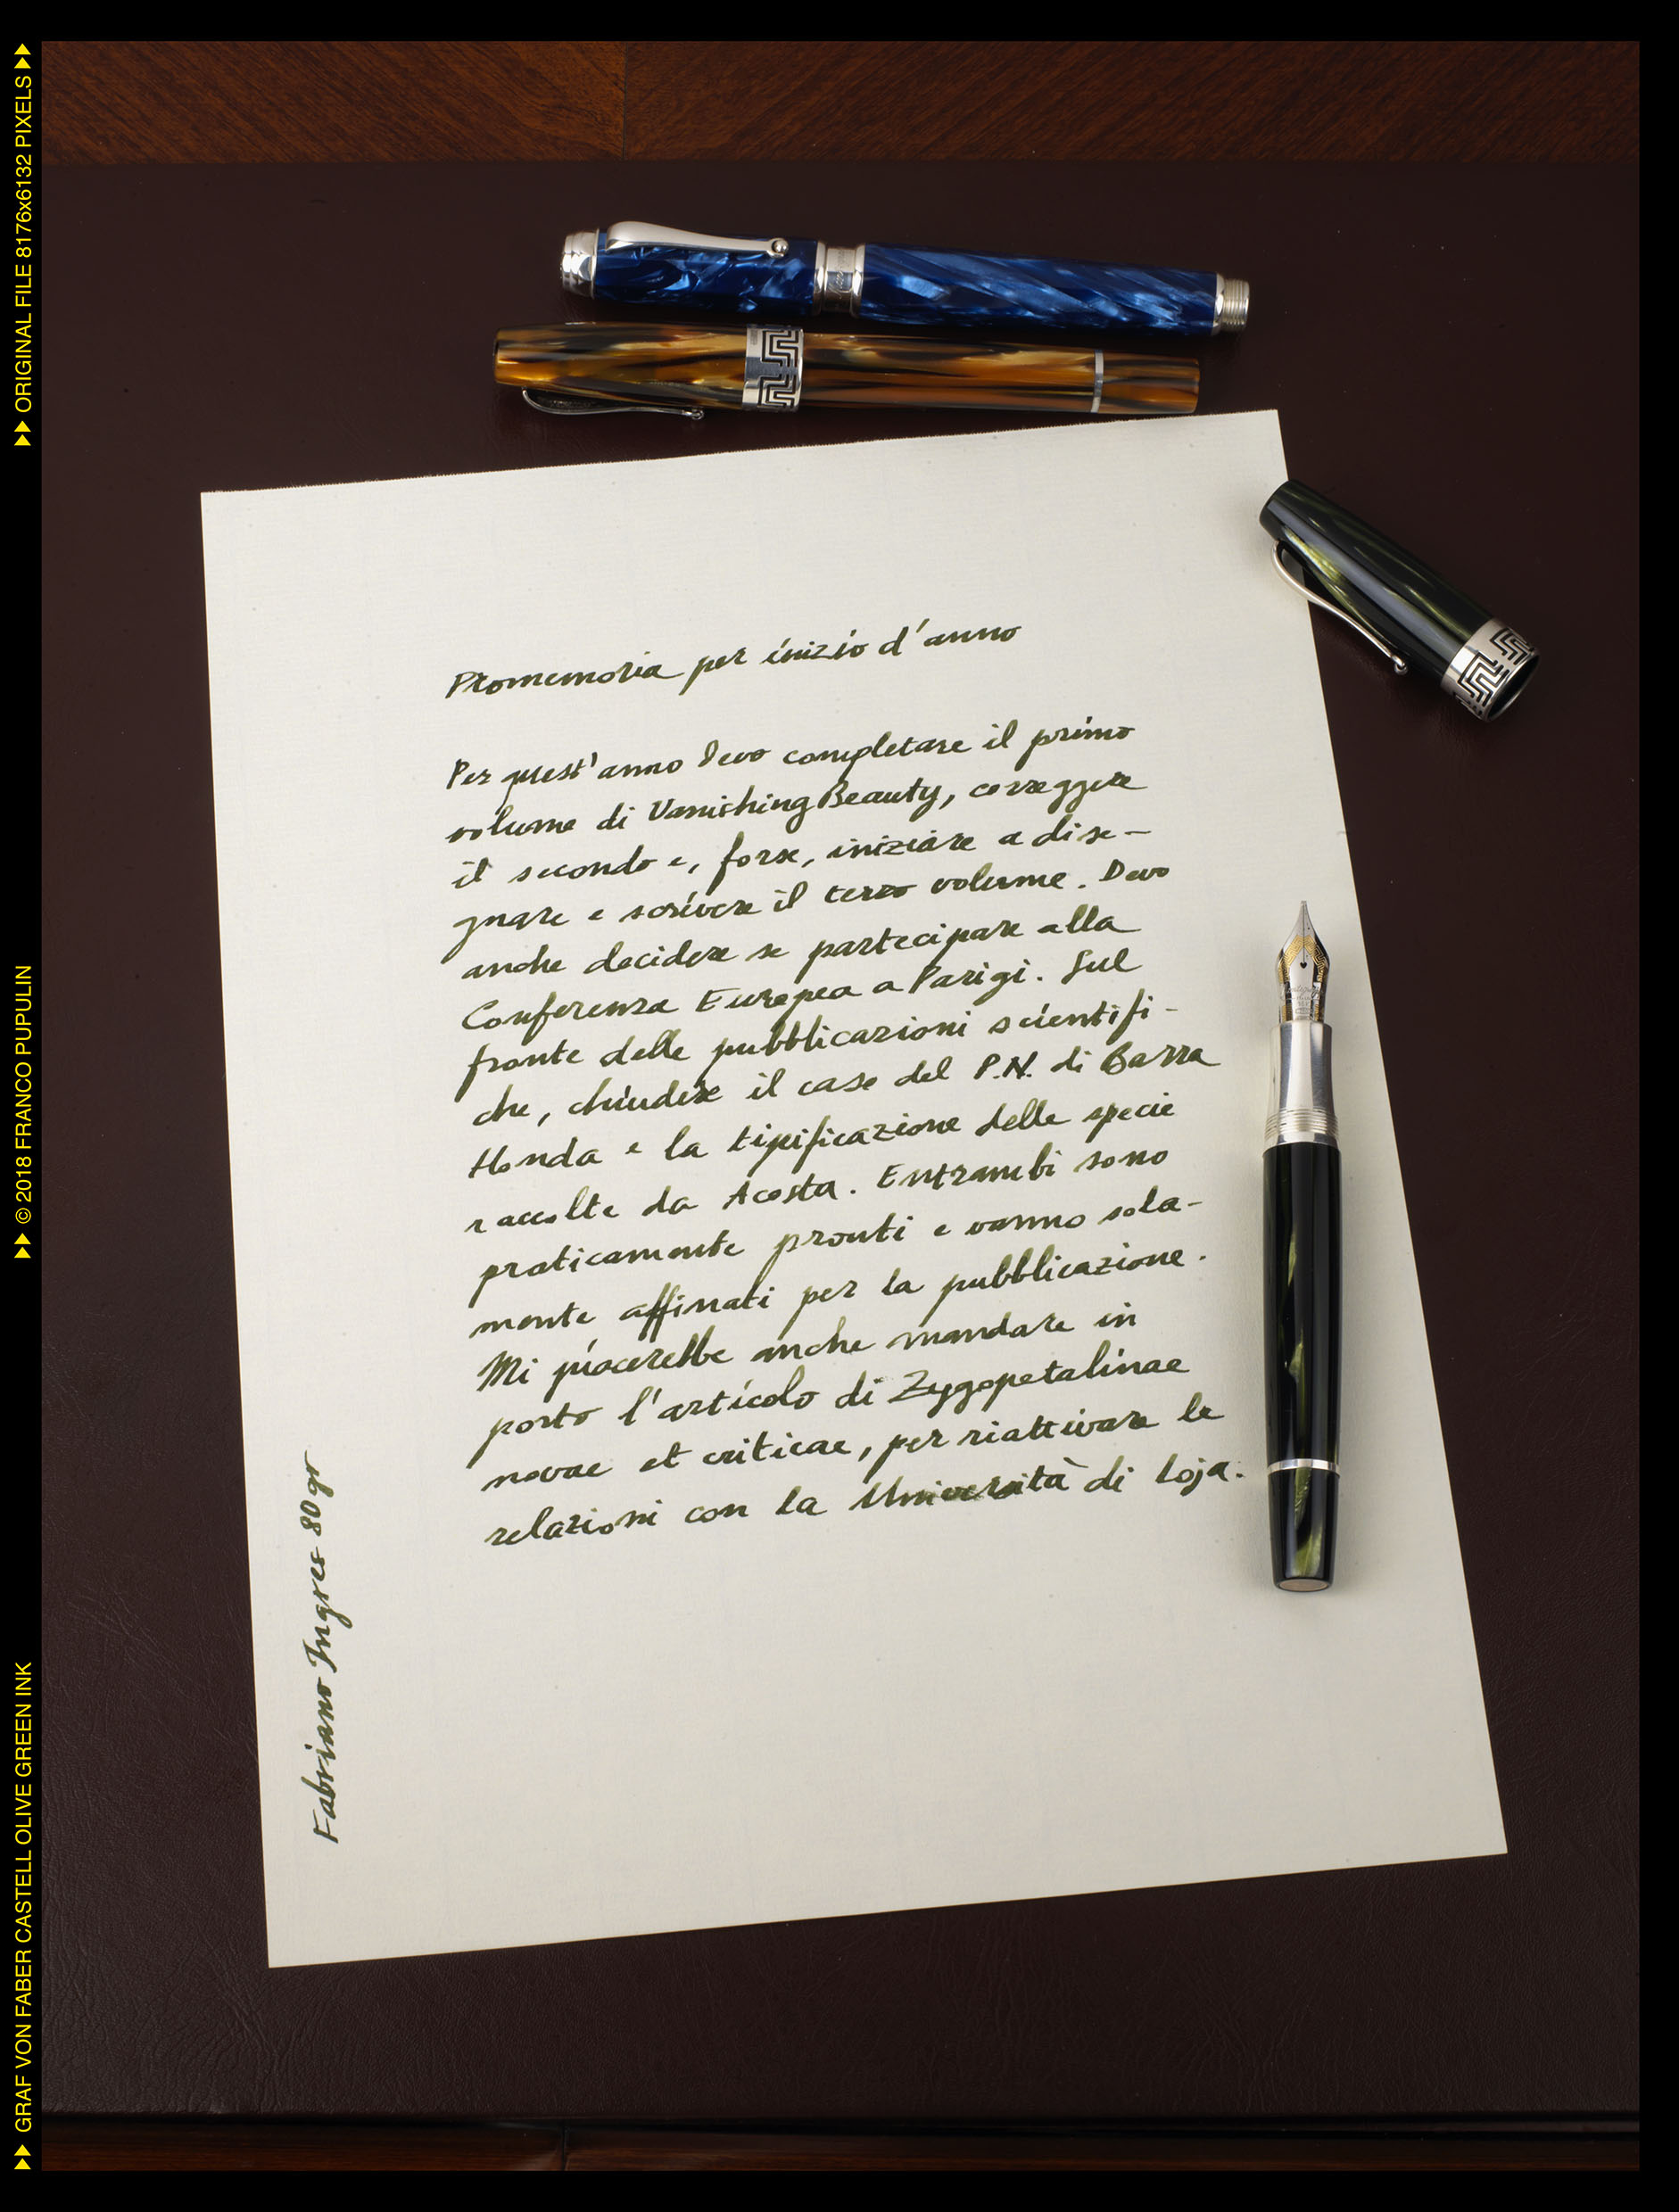 Promemoria per inizio d'anno
Per quest'anno Devo completare il primo
volume di Vanishing Beauty, correggere
il secondo e, forse, iniziare a dise-
gnare e scrivere il terzo volume. Devo
anche decidere se partecipare alla
Conferenza Europea a Parigi. Sul
fronte delle pubblicazioni scientifi-
che, chiudere il case del P.N. di Barra
Honda e la tipificazione delle specie
raccolte da Acosta. Entrambi sono
praticamente pronti e vanno sola-
mente affinati per la pubblicazione.
Mi piacerebbe anche mandare in
porto l'articolo di Zygopetalinae
novae et criticae, per riattivare le
relazioni con la Università di Loja.
Fabriano Ingres 80 gr
ORIGINAL FILE 8176x6132 PIXELS
© 2018 FRANCO PUPULIN
GRAF VON FABER CASTELL OLIVE GREEN INK